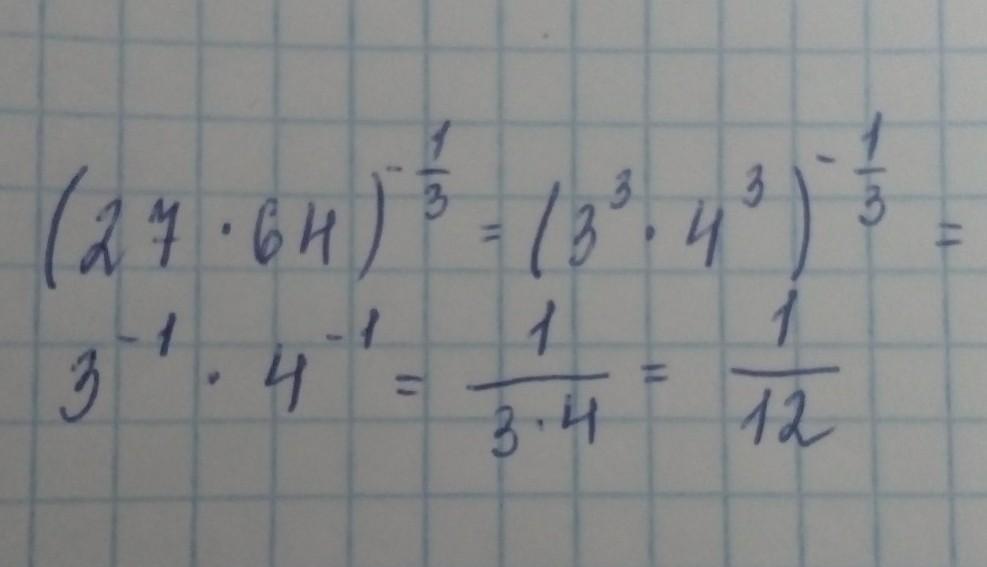 (27 · 64)^{-\frac{1}{3}} = (3^3 · 4^3)^{-\frac{1}{3}} =
3^{-1} · 4^{-1} = \frac{1}{3·4} = \frac{1}{12}